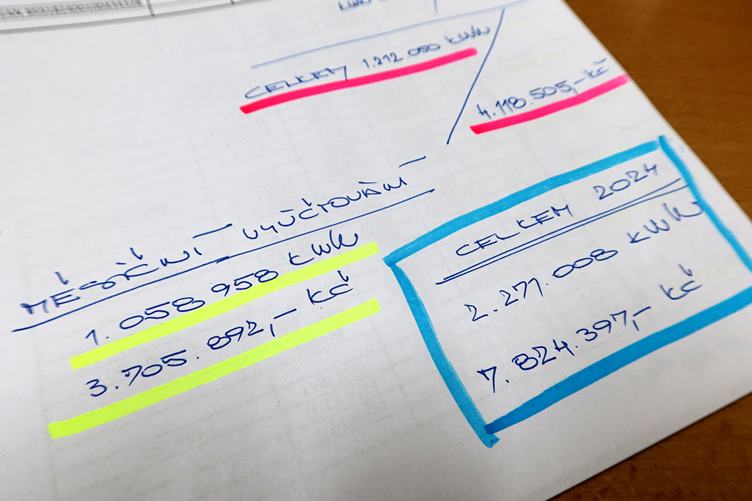 CELKEM 1.212.050 kWh
4.118.505,- Kč
MĚSÍČNÍ VYÚČTOVÁNÍ
1.058 958 kWh
3.705.892,- Kč
CELKEM 2024
2.271.008 kWh
7.824.397,- Kč